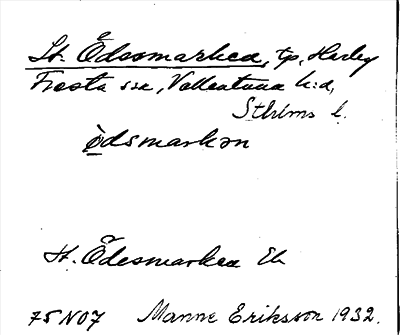 St. Ödesmarken, tp, Harby
Fresta sn, Vallentuna h:d,
Sthlms l.
ödsmarkən
St. Ödesmarken Eb
75 NO7 Manne Eriksson 1932.